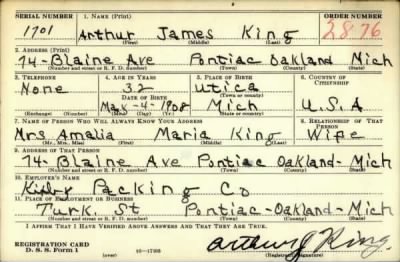 SERIAL NUMBER 1. NAME (Print) ORDER NUMBER
1701 Arthur James King 2876
(First) (Middle) (Last)
2. ADDRESS (Print)
74-Blaine Ave Pontiac Oakland Mich
(Number and street or R. F. D. number) (Town) (County) (State)
3. TELEPHONE 4. AGE IN YEARS 5. PLACE OF BIRTH 6. COUNTRY OF CITIZENSHIP
None 32 Utica
DATE OF BIRTH
May-4-1908 Mich U.S.A
(Exchange) (Number) (Mo.) (Day) (Yr.) (State or country)
7. NAME OF PERSON WHO WILL ALWAYS KNOW YOUR ADDRESS 8. RELATIONSHIP OF THAT PERSON
Mrs Amalia Maria King Wife
(Mr., Mrs., Miss) (First) (Middle) (Last)
9. ADDRESS OF THAT PERSON
74-Blaine Ave Pontiac Oakland-Mich
(Number and street or R. F. D. number) (Town) (County) (State)
10. EMPLOYER'S NAME
Packing Co
11. PLACE OF EMPLOYMENT OR BUSINESS
Turk. St Pontiac-Oakland-Mich
(Number and street or R. F. D. number) (Town) (County) (State)
I AFFIRM THAT I HAVE VERIFIED ABOVE ANSWERS AND THAT THEY ARE TRUE.
REGISTRATION CARD
D. S. S. Form 1 (over) Arthur J King
(Registrant's signature)